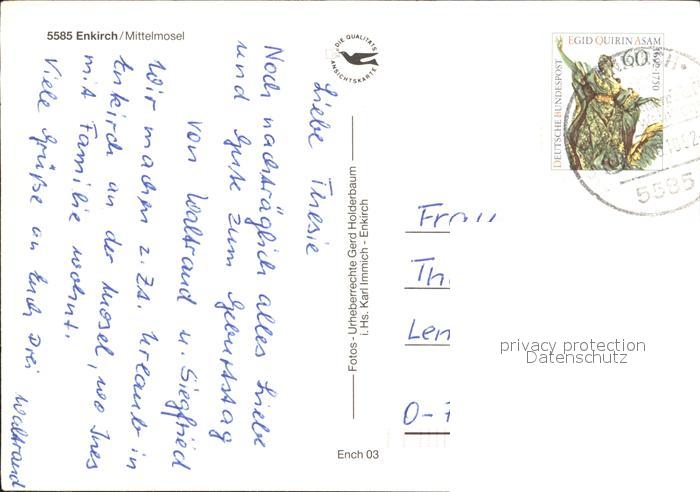 5585 Enkirch/Mittelmosel
DIE QUALITÄTS
ANSICHTSKARTE
Liebe Thesie
Noch nachträglich alles Liebe
und Gute zum Geburtstag
von Waltraud u. Siegfried
Wir machen z. Zt. Urlaub in
Enkirch an der Mosel, wo Ines
mit Familie wohnt.
Viele Grüße an Euch Drei Waltraud
Fotos - Urheberrechte Gerd Holderbaum
i. Hs. Karl Immich - Enkirch
Ench 03
EGID QUIRIN ASAM
60
1692-1750
DEUTSCHE BUNDESPOST
5585
Frau
Th
Len
O-7
privacy protection
Datenschutz